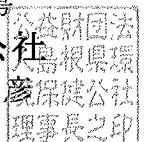 号
公社
彦
公益財団法
人島根県環
境保健公社
理事長之印